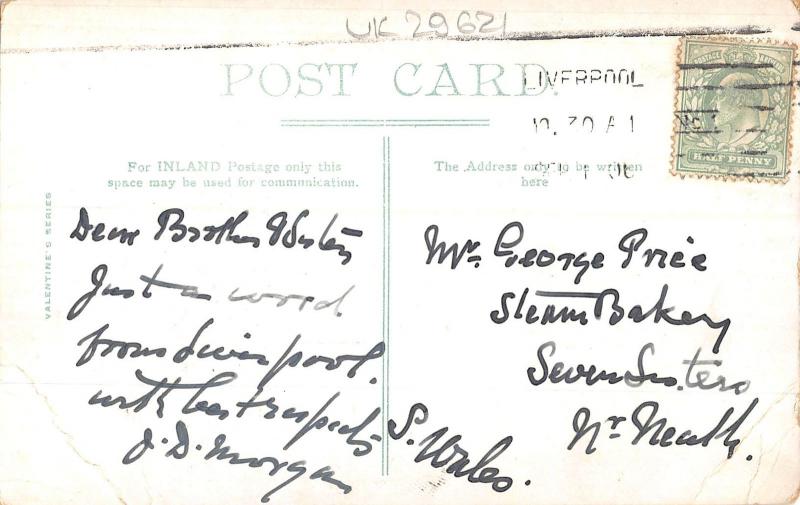 UK 29621
POST CARD.
LIVERPOOL
10.30 A
HALF PENNY
For INLAND Postage only this
space may be used for communication.
The Address only to be written
here
VALENTINE'S SERIES
Dear Brother & Sister
Just a word
from Liverpool.
with best respects
J. D. Morgan
Mr. George Price
Steam Bakery
Seven Sisters
Nr Neath.
S. Wales.